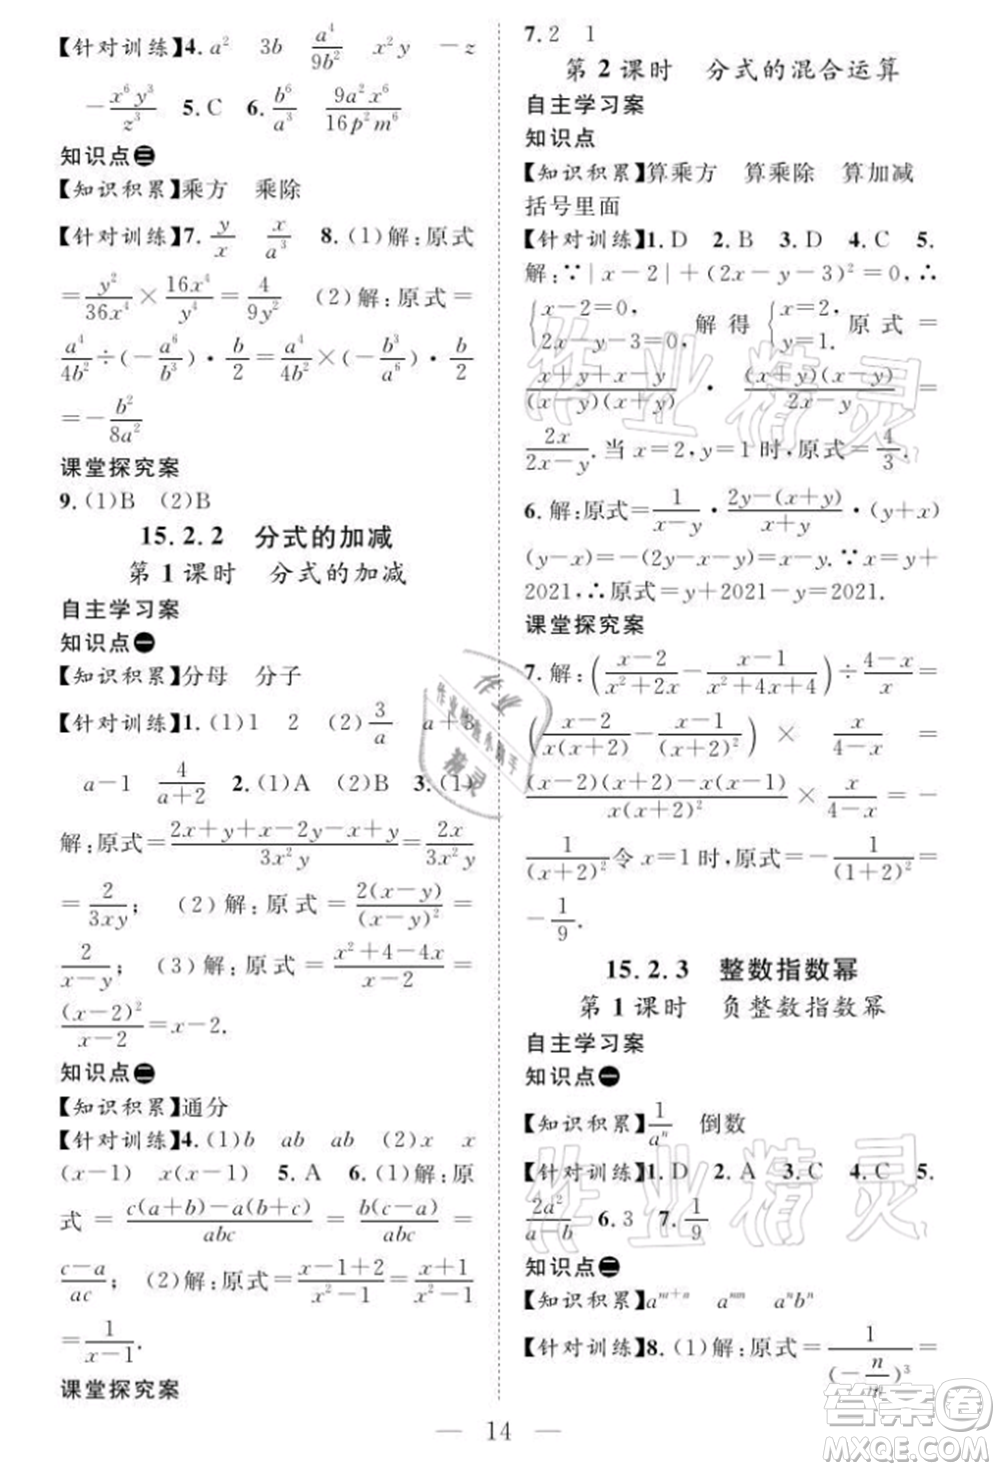 【针对训练】4. a²　3b　a⁴/9b²　x²y　-z
-x⁶y³/z³　5. C　6. b⁶/a³　9a²x⁶/16p²m⁶
知识点三
【知识积累】乘方　乘除
【针对训练】7. y/x　x/a³　8. (1)解:原式
=y²/36x⁴×16x⁴/y⁴=4/9y²　(2)解:原式=
a⁴/4b²÷(-a⁶/b³)·b/2=a⁴/4b²·(-b³/a⁶)·b/2
=-b²/8a²
课堂探究案
9. (1)B　(2)B
15.2.2　分式的加减
第1课时　分式的加减
自主学习案
知识点一
【知识积累】分母　分子
【针对训练】1. (1)1　2　(2)3/a　a+3
a-1　4/(a+2)　2. (1)A　(2)B　3. (1)
解:原式=(2x+y+x-2y-x+y)/3x²y=2x/3x²y
=2/3xy;　(2)解:原式=2(x-y)/(x-y)²=
2/(x-y);　(3)解:原式=(x²+4-4x)/(x-2)=
(x-2)²/(x-2)=x-2.
知识点二
【知识积累】通分
【针对训练】4. (1)b　ab　ab　(2)x　x
(x-1)　x(x-1)　5. A　6. (1)解:原
式=(c(a+b)-a(b+c))/abc=b(c-a)/abc=
(c-a)/ac　(2)解:原式=(x-1+2)/(x²-1)=(x+1)/(x²-1)
=1/(x-1).
课堂探究案
7. 2　1
第2课时　分式的混合运算
自主学习案
知识点
【知识积累】算乘方　算乘除　算加减
括号里面
【针对训练】1. D　2. B　3. D　4. C　5.
解:∵|x-2|+(2x-y-3)²=0,∴
{x-2=0, 2x-y-3=0, 解得{x=2, y=1. 原式=
(x+y+x-y)/(x-y)(x+y)·(x+y)(x-y)/(2x-y)=
2x/(2x-y).当x=2,y=1时,原式=4/3.
6. 解:原式=1/(x-y)·(2y-(x+y))/(x+y)·(y+x)
(y-x)=-(y-x)=x-y.∵x=y+
2021,∴原式=y+2021-y=2021.
课堂探究案
7. 解:((x-2)/(x²+2x)-(x-1)/(x²+4x+4))÷(4-x)/x=
((x-2)/x(x+2)-(x-1)/(x+2)²)×x/(4-x)=
((x-2)(x+2)-x(x-1))/x(x+2)²×x/(4-x)=-
1/(x+2)²令x=1时,原式=-1/(1+2)²=
-1/9.
15.2.3　整数指数幂
第1课时　负整数指数幂
自主学习案
知识点一
【知识积累】1/aⁿ　倒数
【针对训练】1. D　2. A　3. C　4. C　5.
2a²/(a-b)　6. 3　7. 1/9
知识点二
【知识积累】aᵐ⁺ⁿ　aᵐⁿ　aⁿbⁿ
【针对训练】8. (1)解:原式=1/(-n/m)³=
14
作业精灵
答案圈
MXQE.COM